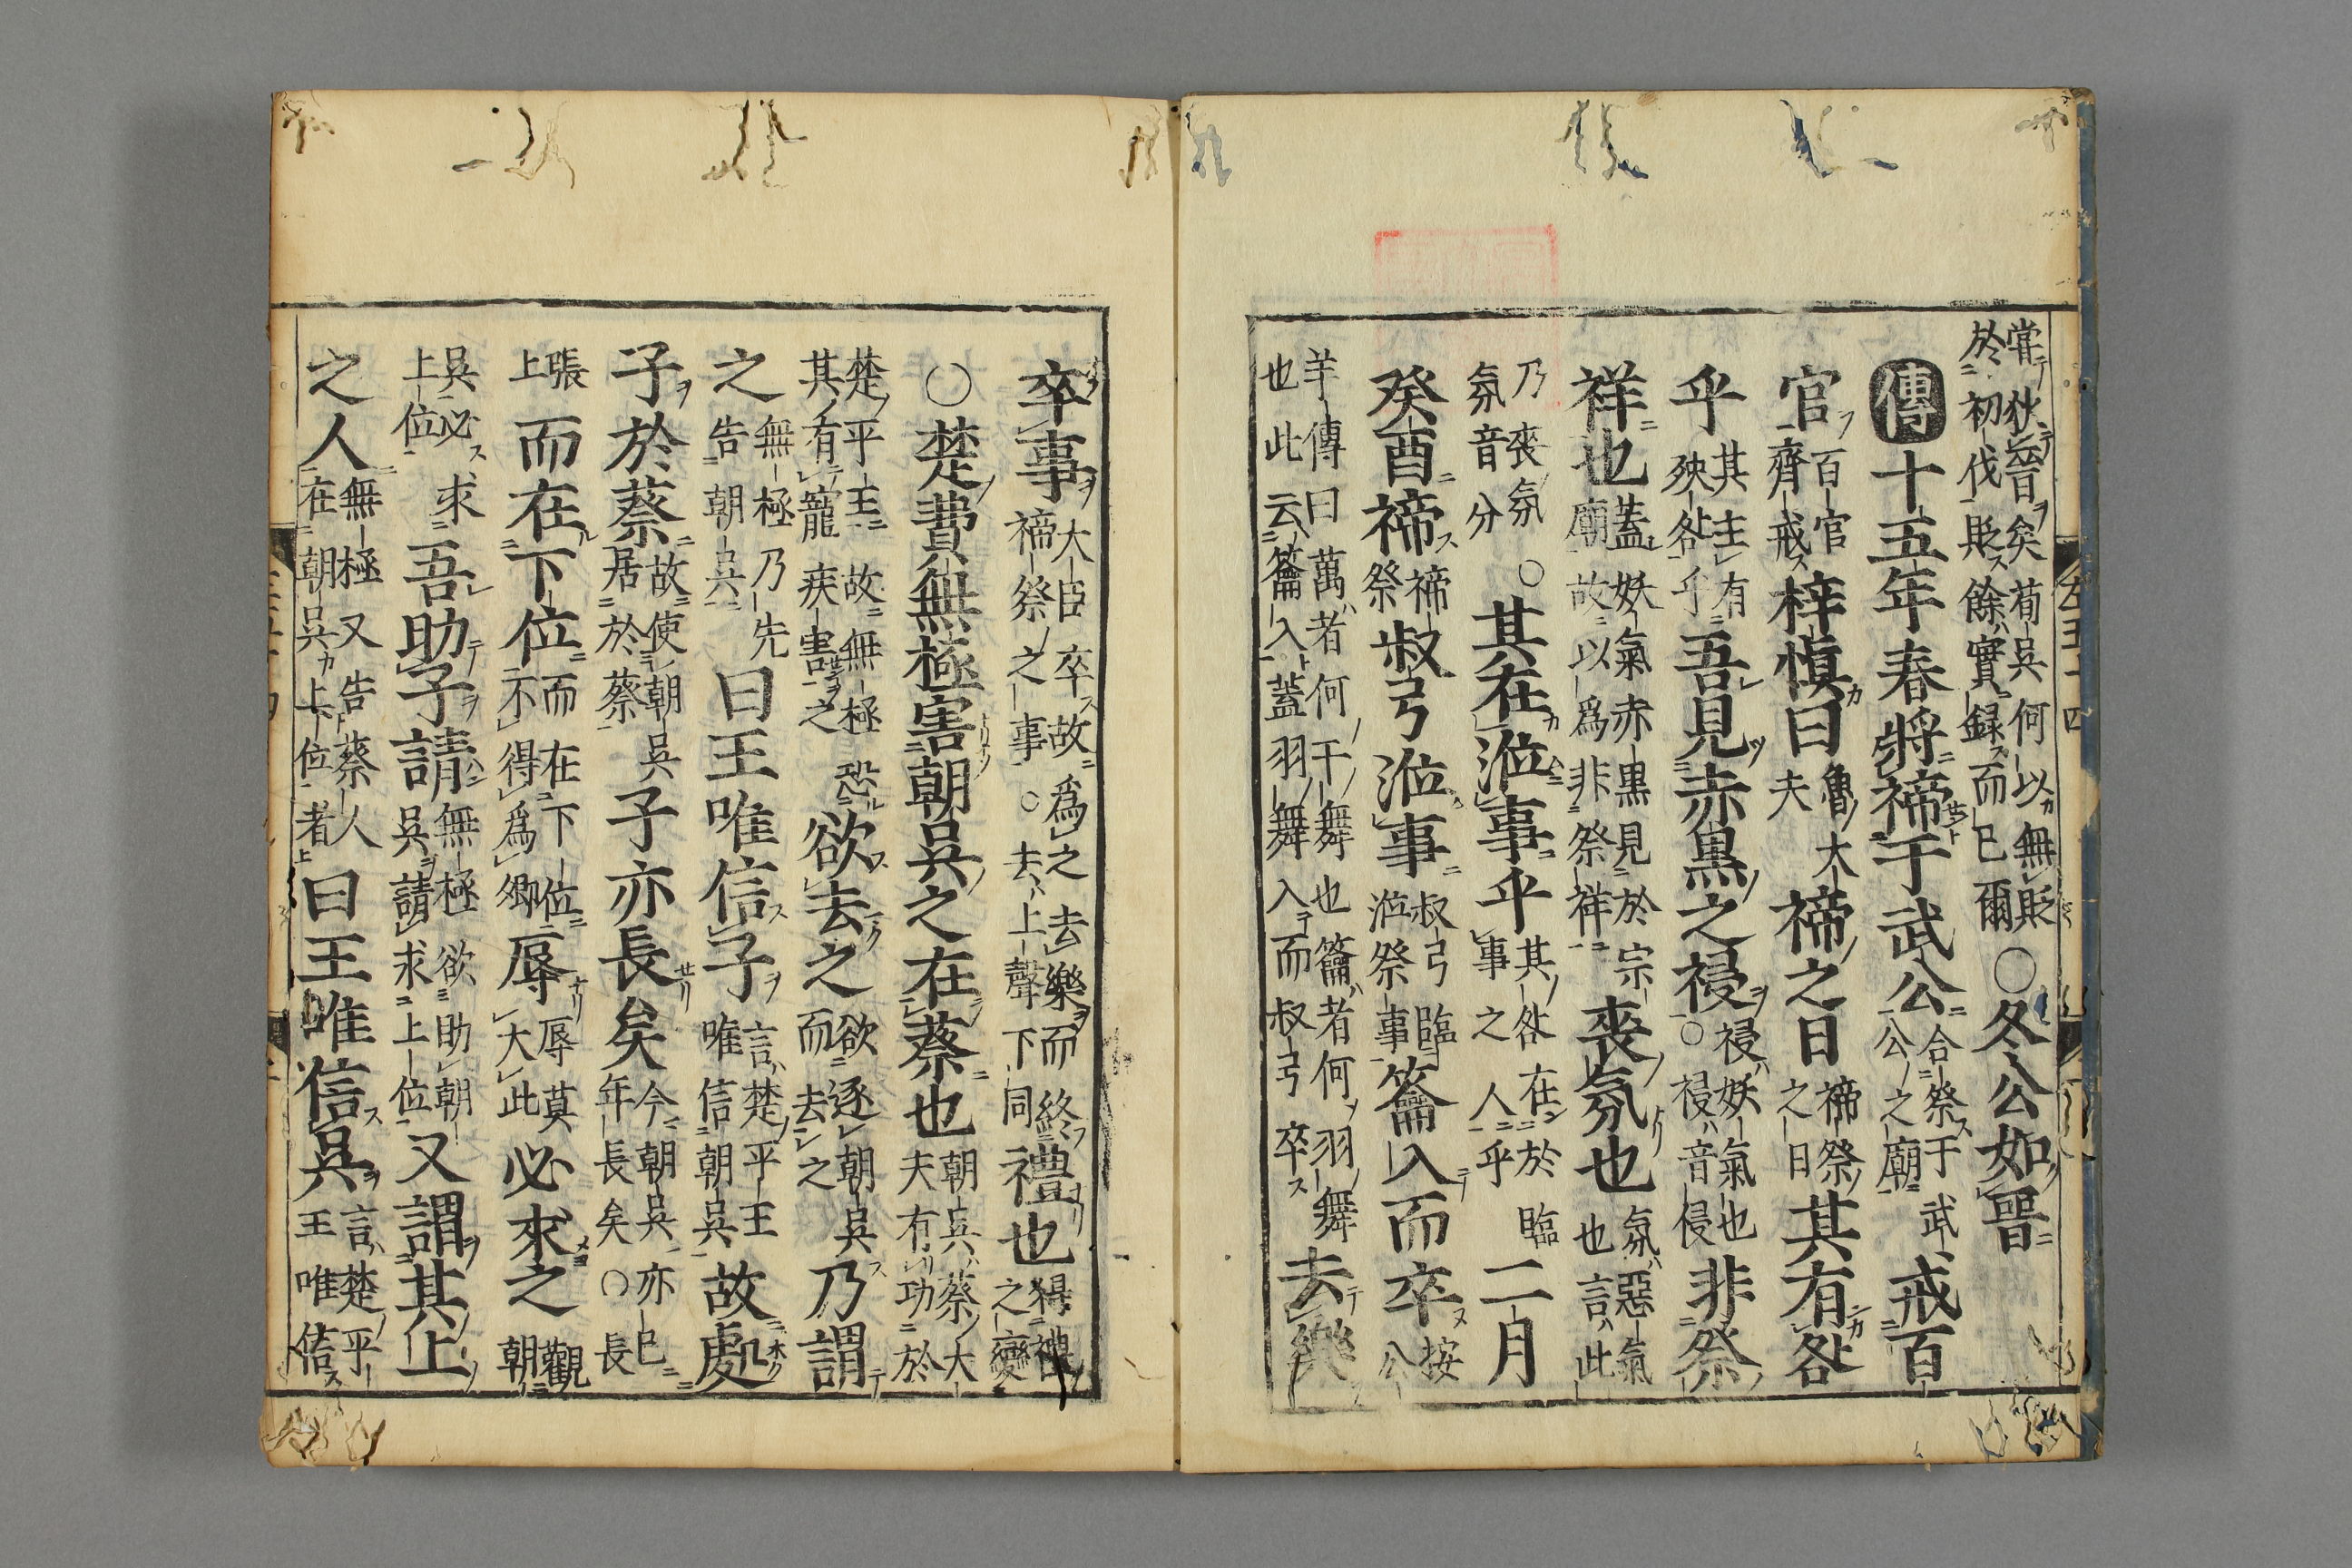 甞狄晉矣荀吳何以無貶於初伐貶餘實録而已爾○冬公如晉
傳十五年春將禘于武公合祭于武公之廟戒百
官百官齊戒梓慎曰魯大夫禘之日禘祭之日其有咎
乎其主有殃咎乎吾見赤黒之祲祲妖氣也○祲音侵非祭
祥也蓋妖氣赤黒見於宗廟故以爲非祭祥喪氛也氛惡氣也言此
乃喪氛氛音分○其在涖事乎其咎在於臨事之人乎二月
癸酉禘禘祭叔弓涖事叔弓臨涖祭事籥入而卒按公
羊傳曰萬者何干舞也籥者何羽舞也此云籥入蓋羽舞入而叔弓卒去樂
卒事大臣卒故爲之去樂而終禘祭之事○去上聲下同禮也得禮之變
○楚費無極害朝吳之在蔡也朝吳蔡大夫有功於
楚平王故無極恐其有寵疾害之欲去之欲逐朝吳而去之乃謂
之無極乃先告朝吳曰王唯信子言楚平王唯信朝吳故處
子於蔡故使朝吳居於蔡子亦長矣今朝吳亦已年長矣○長
張上而在下位而在下位不得爲卿辱辱莫大此必求之觀朝
吳必求上位吾助子請無極欲助朝吳請求上位又謂其上
之人無極又告蔡人在朝吳上位者曰王唯信吳言楚平王唯信